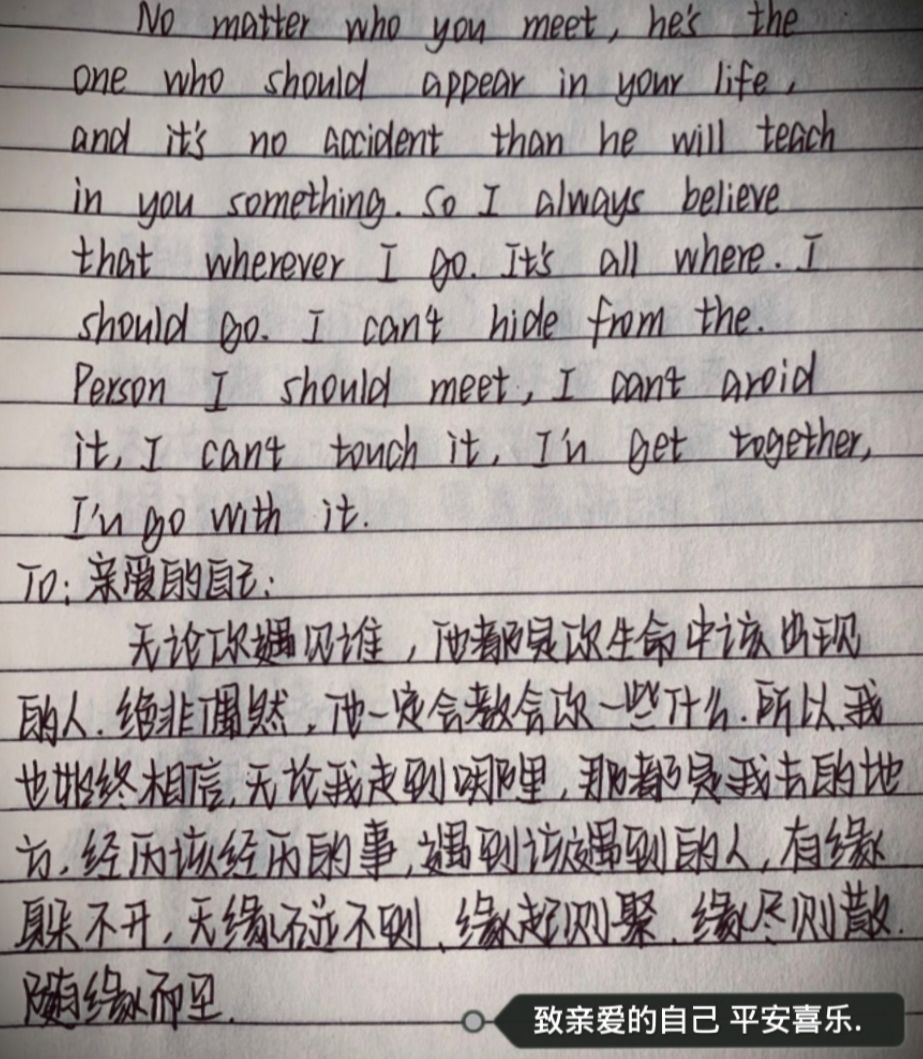 No matter who you meet, he's the
one who should appear in your life,
and it's no accident than he will teach
in you something. So I always believe
that wherever I go. It's all where. I
should go. I can't hide from the.
Person I should meet, I can't aroid
it, I can't touch it, I'n get together,
I'n go with it.
To:亲爱的自己:
无论你遇见谁,他都是你生命中该出现
的人.绝非偶然,他一定会教会你一些什么.所以我
也始终相信,无论我走到哪里,那都是我去的地
方,经历该经历的事,遇到该遇到的人,有缘
躲不开,无缘碰不到,缘起则聚,缘尽则散.
随缘而
致亲爱的自己 平安喜乐.